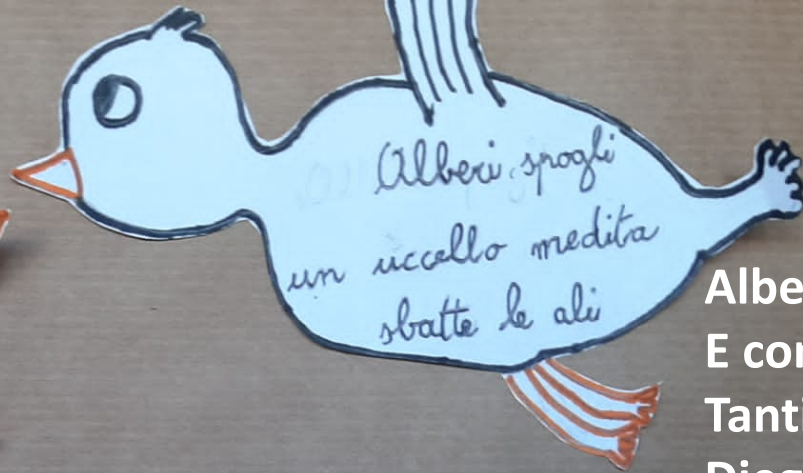 Alberi spogli
un uccello medita
sbatte le ali
Albe
E con
Tanti